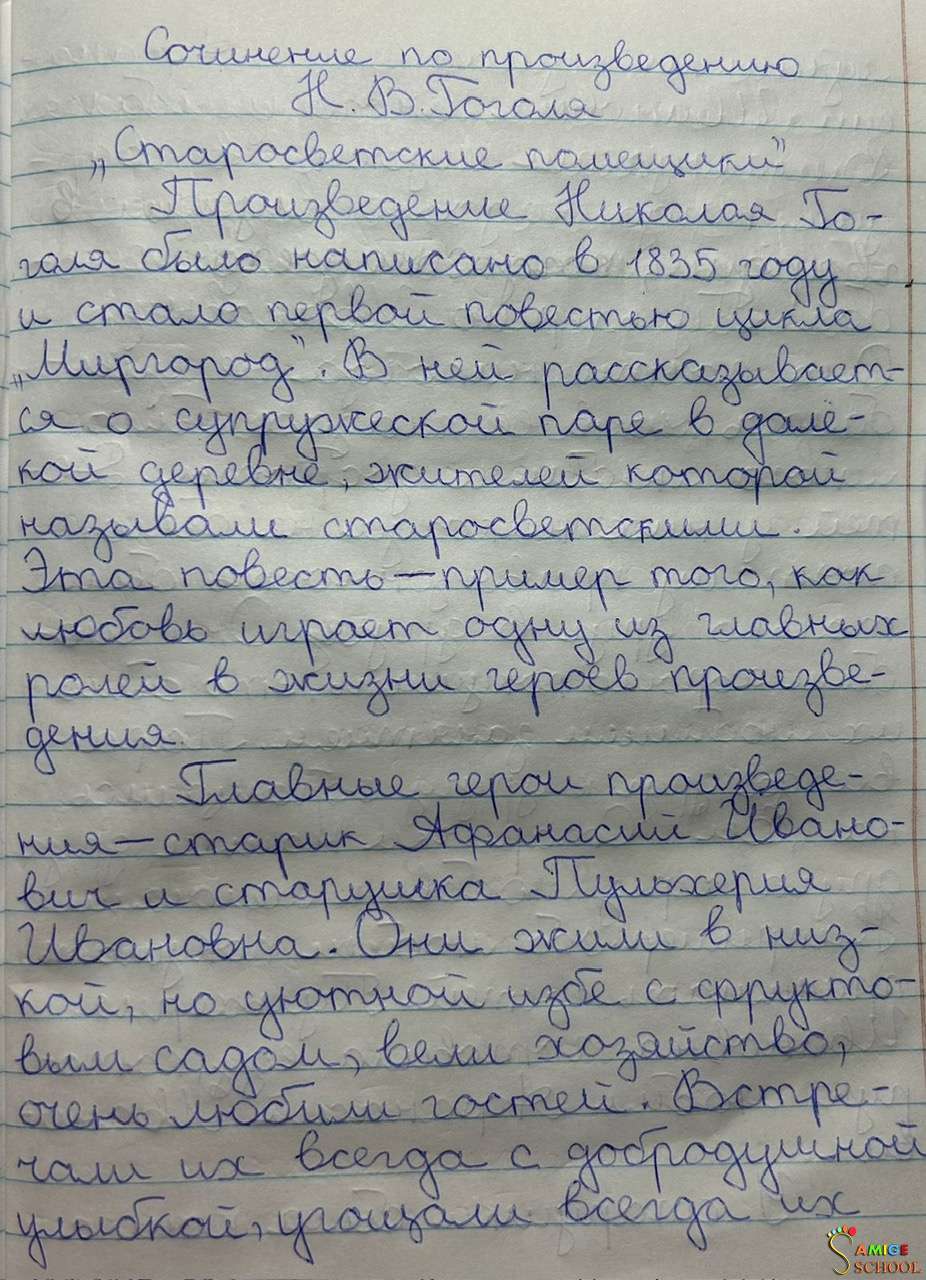 Сочинение по произведению
Н. В. Гоголя
„Старосветские помещики"
Произведение Николая Го-
голя было написано в 1835 году
и стало первой повестью цикла
„Миргород". В ней рассказывает-
ся о супружеской паре в далё-
кой деревне, жителей которой
называли старосветскими.
Эта повесть—пример того, как
любовь играет одну из главных
ролей в жизни героев произве-
дения.
Главные герои произведе-
ния—старик Афанасий Ивано-
вич и старушка Пульхерия
Ивановна. Они жили в низ-
кой, но уютной избе с фрукто-
вым садом, вели хозяйство,
очень любили гостей. Встре-
чали их всегда с добродушной
улыбкой, угощали всегда их
SAMIGE
SCHOOL